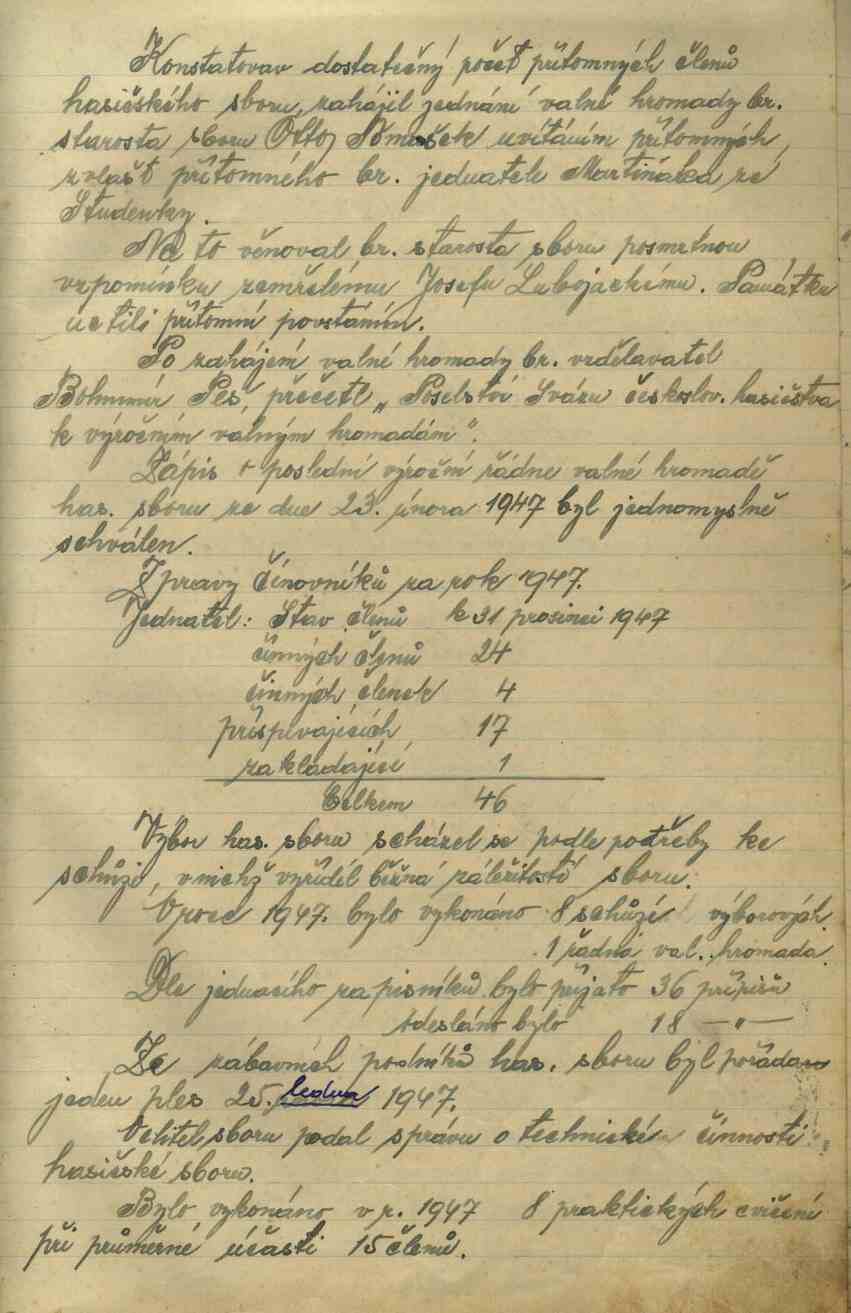 Konstatovav dostatečný počet přítomných členů
hasičského sboru, zahájil jednání valné hromady br.
starosta sboru Otto uvítáním přítomných,
zvlášť přítomného br. jednatele Martiňáka ze
Studenky.
Na to věnoval br. starosta sboru posmrtnou
vzpomínku zemřelému Josefu Lubojackému. Památku
uctili přítomní povstáním.
Po zahájení valné hromady br. vzdělavatel
Bohumír Peš, přečetl „Poselství Svazu českoslov. hasičstva
k výročním valným hromadám".
Zápis o poslední výroční řádne valné hromadě
has. sboru ze dne 23. února 1947 byl jednomyslně
schválen.
Zpravy činovníků za rok 1947.
Jednatel: Stav členů k 31 prosinci 1947
činných členů 24
činných členek 4
příspívajících 17
zakládající 1
Celkem 46
Výbor has. sboru scházel se podle potřeby ke
schůzi, v nichž vyřídil běžná záležitostí sboru.
V roce 1947. bylo vykonáno 8 schůzí výborových
1 řádná val. hromada.
Dle jednacího zapisníků bylo přijato 36 přípisů
odesláno bylo 18 —"—
Ze zábavních podníků has. sboru byl pořádan
jeden ples 25. ledna 1947.
Velitel sboru podal správu o technické činnosti
hasičské sboru.
Bylo vykonáno v r. 1947 8 praktických cvičení
při průměrné účasti 15 členů.